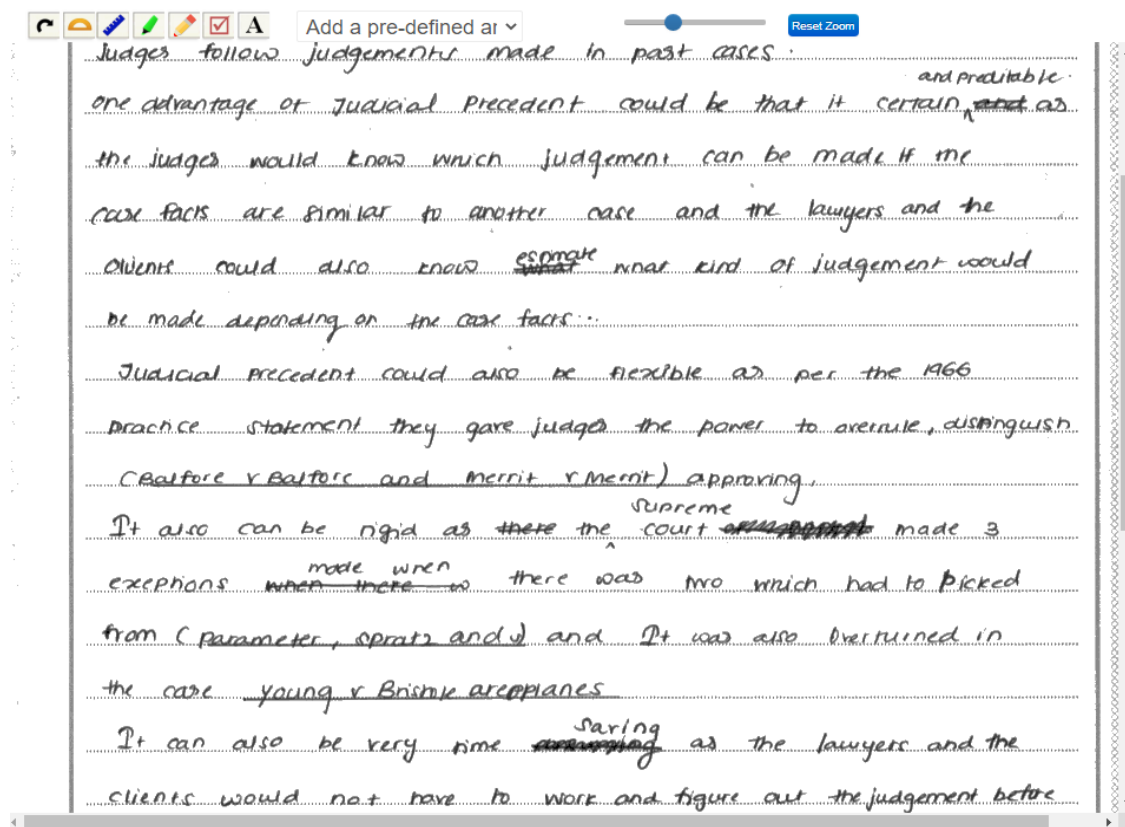 Add a pre-defined ar
Reset Zoom
A
Judges follow judgements made in past cases.
and preditable.
one advantage of Judicial Precedent could be that it certain and as
the judges would know which judgement can be made if the
case facts are similar to another case and the lawyers and the
clients could also know what estimate what kind of judgement would
be made depending on the case facts...
Judicial precedent could also be flexible as per the 1966
practice statement they gave judges the power to overrule, distinguish
(Balfore v Balfore and merrit v Merrit) approving.
supreme
It also can be rigid as there the court made 3
made when
exeptions when there w there was two which had to picked
from (parameter, spratz and v) and It was also overturned in
the case young v Bristole areoplanes
saving
It can also be very time as the lawyers and the
clients would not have to work and figure out the judgement before